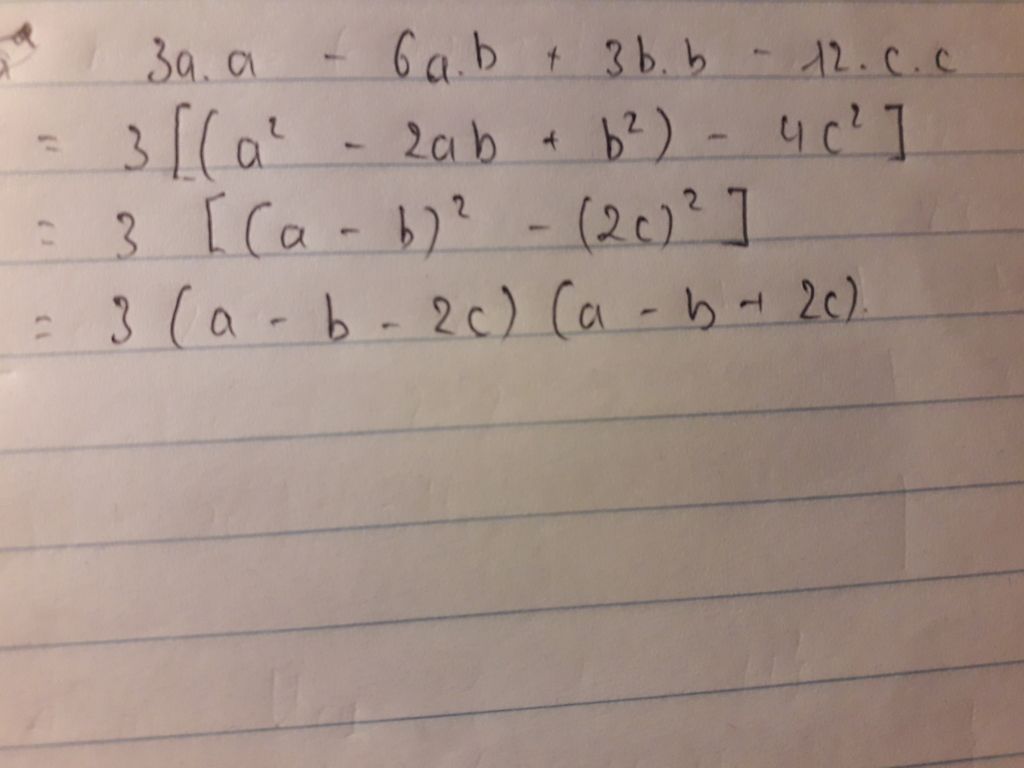 3a.a - 6a.b + 3b.b - 12.c.c
= 3 [(a² - 2ab + b²) - 4c²]
= 3 [(a - b)² - (2c)²]
= 3 (a - b - 2c) (a - b + 2c).